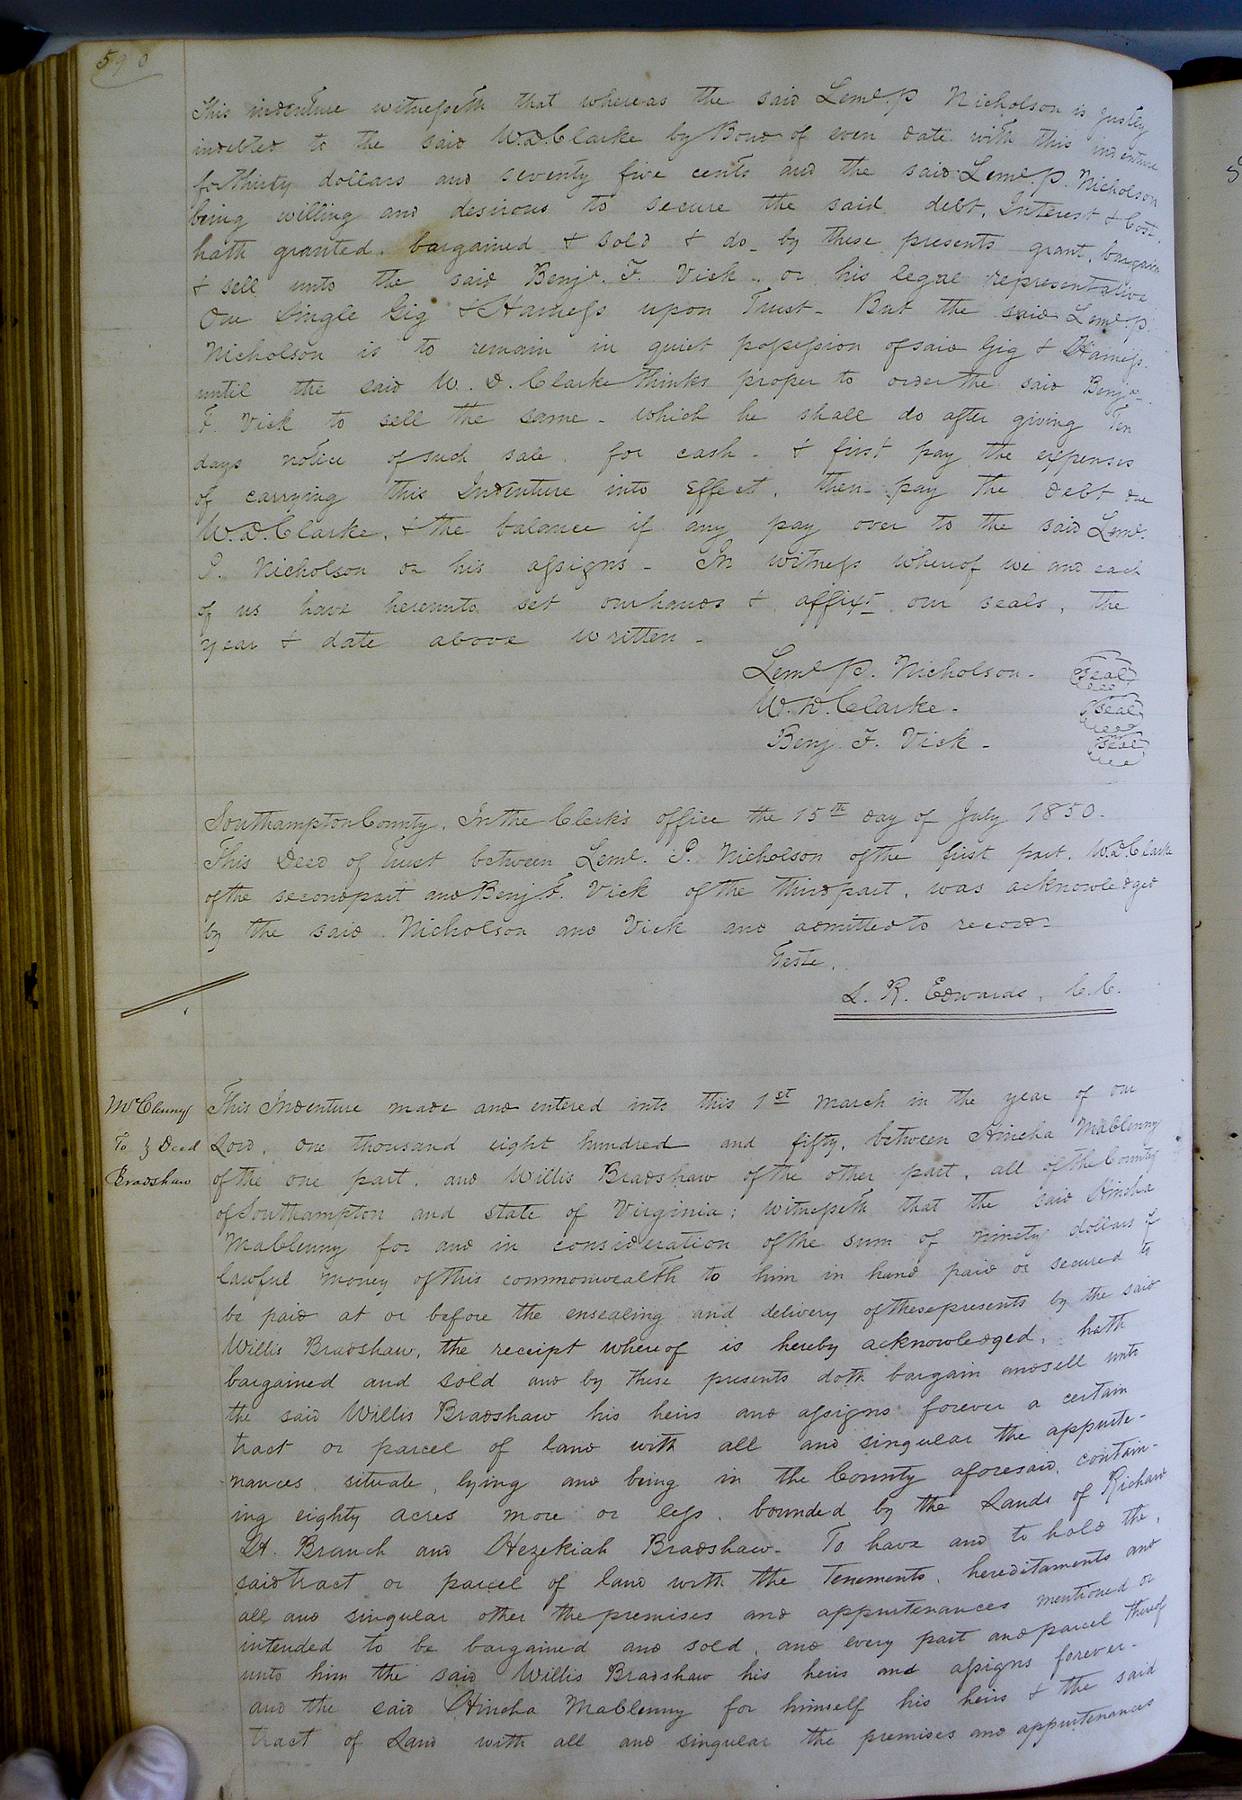 590
This indenture witnesseth that whereas the said Leml. P Nicholson is justly
indebted to the said W.D. Clarke by Bond of even date with this indenture
for thirty dollars and seventy five cents and the said Leml. P. Nicholson
being willing and desirous to secure the said debt, Interest & Cost.
hath granted. bargained & sold & do by these presents grant, bargain
& sell unto the said Benjn. F. Vick or his legal representative
One Single Gig & Harness upon Trust - But the said Leml. P.
Nicholson is to remain in quiet possession of said Gig & Harness
until the said W. D. Clarke thinks proper to order the said Benjn.
F. Vick to sell the same - which he shall do after giving Ten
days notice of such sale for cash - & first pay the expenses
of carrying this Indenture into effect, then pay the debt due
W.D. Clarke, & the balance if any pay over to the said Leml.
P. Nicholson or his assigns - In witness whereof we and each
of us have hereunto set our hands & affixt our seals, the
year & date above written -
Leml P. Nicholson. Seal
W. D. Clarke. Seal
Benj. F. Vick - Seal
Southampton County. In the Clerk's office the 15th day of July 1850.
This Deed of Trust between Leml. P. Nicholson of the first part, W.D. Clark
of the second part and Benj F. Vick of the third part, was acknowledged
by the said Nicholson and Vick and admitted to record
Teste.
L. R. Edwards, C.C.
McClenny
To } Deed
Bradshaw
This Indenture made and entered into this 1st March in the year of our
Lord, one thousand eight hundred and fifty, between Hincha McClenny
of the one part, and Willis Bradshaw of the other part, all of the County
of Southampton and state of Virginia; witnesseth that the said Hincha
McClenny for and in consideration of the sum of ninety dollars of
lawful money of this commonwealth to him in hand paid or secured to
be paid at or before the ensealing and delivery of these presents by the said
Willis Bradshaw, the receipt whereof is hereby acknowledged, hath
bargained and sold and by these presents doth bargain and sell unto
the said Willis Bradshaw his heirs and assigns forever a certain
tract or parcel of land with all and singular the appurte-
nances, situate, lying and being in the County aforesaid, contain-
ing eighty acres more or less, bounded by the Lands of Richard
H. Branch and Hezekiah Bradshaw - To have and to hold the
said tract or parcel of land with the Tenements, hereditaments and
all and singular other the premises and appurtenances mentioned or
intended to be bargained and sold, and every part and parcel thereof
unto him the said Willis Bradshaw his heirs and assigns forever -
and the said Hincha McClenny for himself his heirs & the said
tract of Land with all and singular the premises and appurtenances